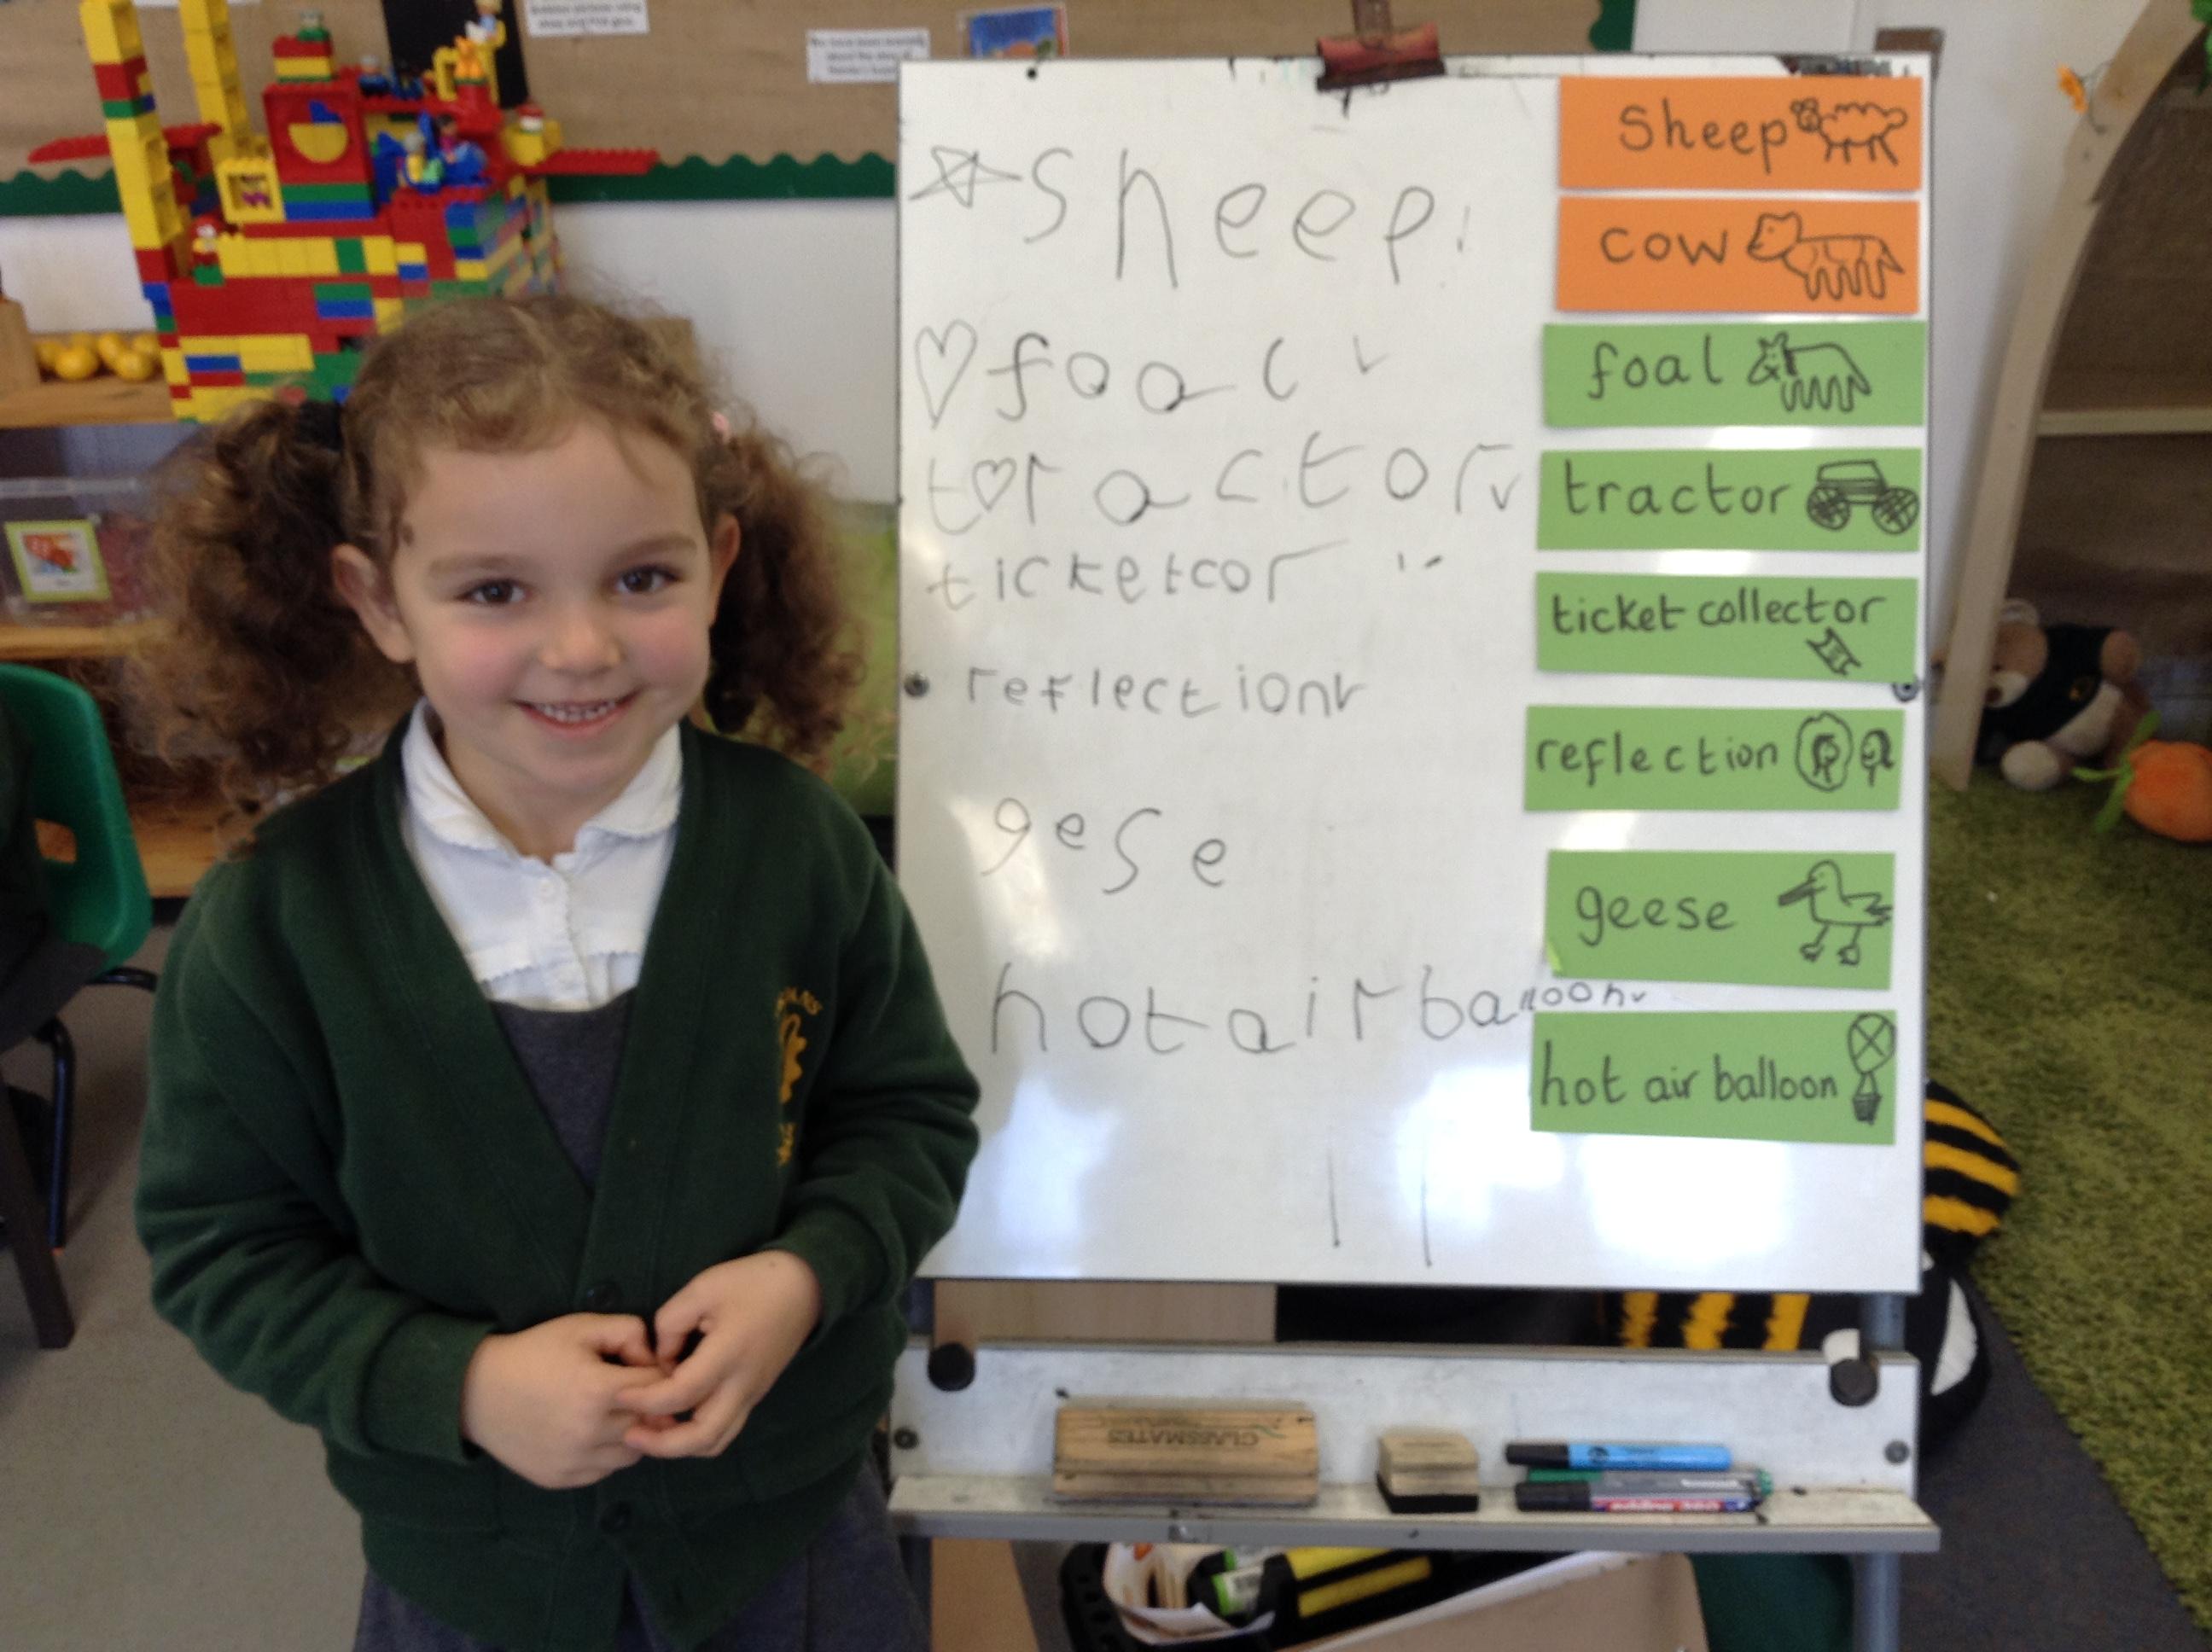 sheep
foal
toractor
ticketcor
reflection
gese
hot air balloon
sheep
cow
foal
tractor
ticket collector
reflection
geese
hot air balloon
CLASSMATES